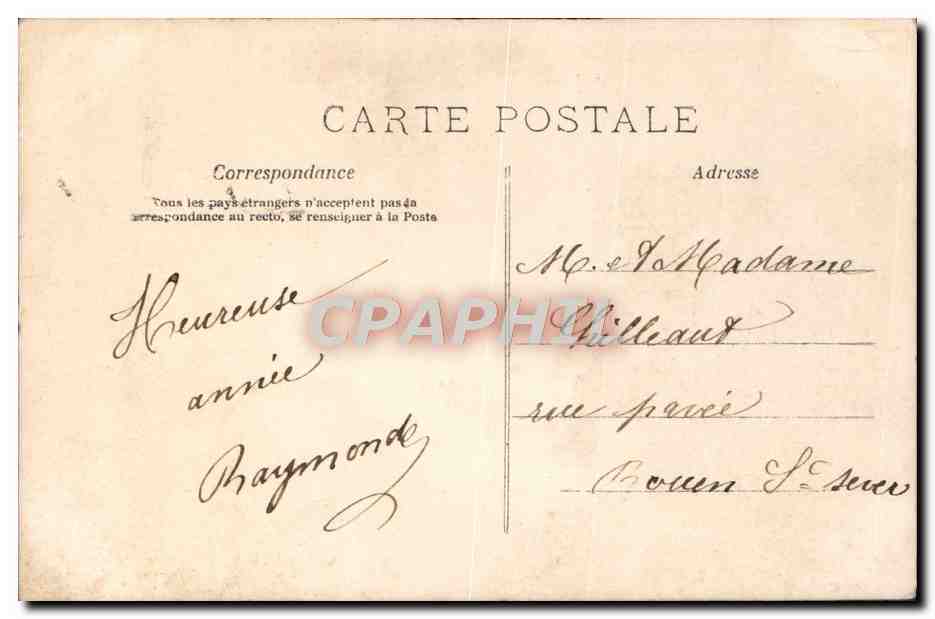 CARTE POSTALE
Correspondance
Tous les pays étrangers n'acceptent pas la
correspondance au recto, se renseigner à la Poste
Heureuse
année
Raymonde
Adresse
M. et Madame
rue pavée
Rouen St sever
CPAPHIL